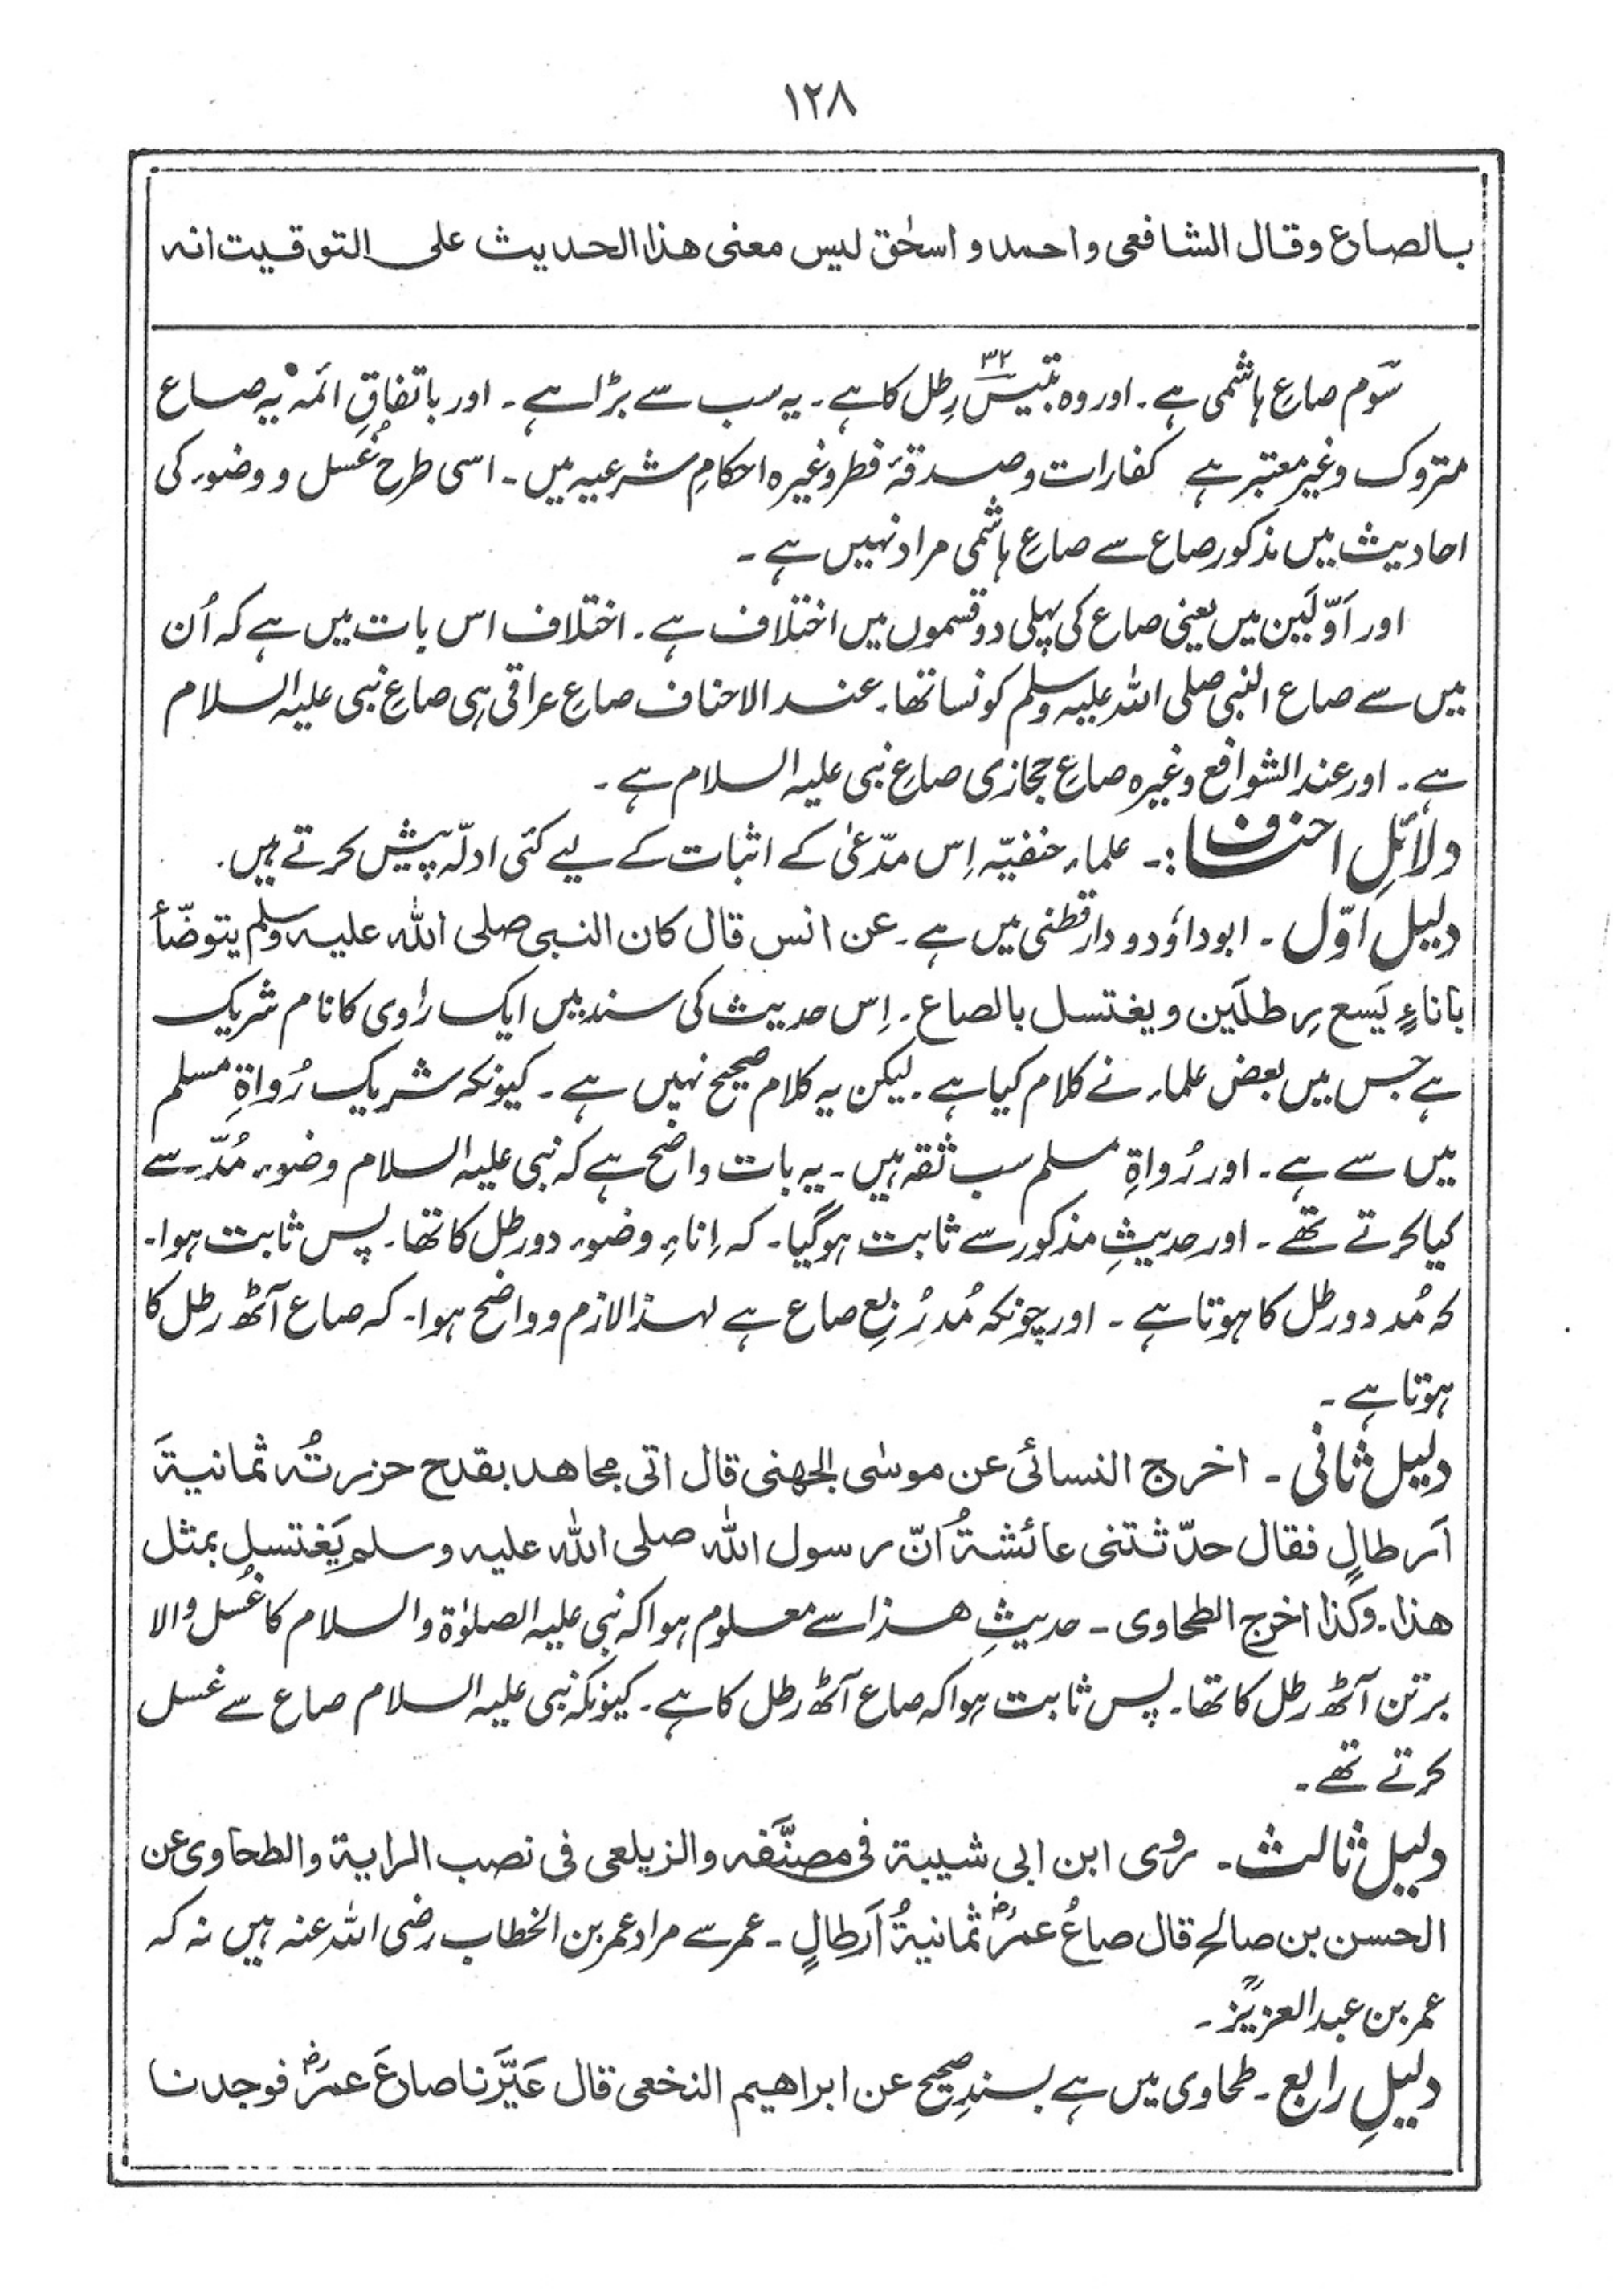 ۱۲۸
بالصاع وقال الشافعی واحمد و اسحٰق لیس معنی هذا الحدیث علی التوقیت انه
سوّم صاعِ ہاشمی ہے۔ اور وہ بتیس ۳۲ رِطل کا ہے۔ یہ سب سے بڑا ہے۔ اور باتفاقِ ائمہ یہ صاع
متروک وغیر معتبر ہے کفارات وصدقۂ فطر وغیرہ احکامِ شرعیہ میں۔ اسی طرح غُسل و وضوء کی
احادیث میں مذکور صاع سے صاعِ ہاشمی مراد نہیں ہے۔
اور اَوّلَین میں یعنی صاع کی پہلی دو قسموں میں اختلاف ہے۔ اختلاف اس بات میں ہے کہ اُن
میں سے صاع النبی صلی اللہ علیہ وسلم کونسا تھا۔ عند الاحناف صاعِ عراقی ہی صاعِ نبی علیہ السلام
ہے۔ اور عند الشوافع وغیرہ صاعِ حجازی صاعِ نبی علیہ السلام ہے۔
دلائلِ احناف :۔ علماء حنفیّہ اِس مدّعیٰ کے اثبات کے لیے کئی ادلّہ پیش کرتے ہیں۔
دلیل اوّل۔ ابوداؤد و دارقطنی میں ہے۔ عن انس قال کان النبی صلی اللہ علیہ وسلم یتوضّأ
باناءٍ یَسع رِطلَین ویغتسل بالصاع۔ اِس حدیث کی سند میں ایک راوی کا نام شریک
ہے جس میں بعض علماء نے کلام کیا ہے۔ لیکن یہ کلام صحیح نہیں ہے۔ کیونکہ شریک رُواۃِ مسلم
میں سے ہے۔ اور رُواۃِ مسلم سب ثقہ ہیں۔ یہ بات واضح ہے کہ نبی علیہ السلام وضوء مُدّ سے
کیا کرتے تھے۔ اور حدیثِ مذکور سے ثابت ہوگیا۔ کہ اِناءِ وضوء دو رطل کا تھا۔ پس ثابت ہوا۔
کہ مُد دو رطل کا ہوتا ہے۔ اور چونکہ مُد رُبعِ صاع ہے لہذا لازم و واضح ہوا۔ کہ صاع آٹھ رطل کا
ہوتا ہے۔
دلیل ثانی۔ اخرج النسائی عن موسٰی الجهنی قال اتی مجاهد بقدح حزرتُه ثمانیةَ
اَرطالٍ فقال حدّثتنی عائشةُ اَنّ رسول اللہ صلی اللہ علیہ وسلم یَغتسل بمثل
هذا۔ وکذا اخرج الطحاوی۔ حدیثِ ہذا سے معلوم ہوا کہ نبی علیہ الصلوٰۃ والسلام کا غُسل والا
برتن آٹھ رطل کا تھا۔ پس ثابت ہوا کہ صاع آٹھ رطل کا ہے۔ کیونکہ نبی علیہ السلام صاع سے غسل
کرتے تھے۔
دلیل ثالث۔ روی ابن ابی شیبة فی مصنَّفه والزیلعی فی نصب الرایة والطحاوی عن
الحسن بن صالح قال صاعُ عمرؓ ثمانیةُ اَرطالٍ۔ عمر سے مراد عمر بن الخطاب رضی اللہ عنہ ہیں نہ کہ
عمر بن عبد العزیزؒ۔
دلیلِ رابع۔ طحاوی میں ہے بسندِ صحیح عن ابراهیم النخعی قال عَیَّرنا صاعَ عمرؓ فوجدنا